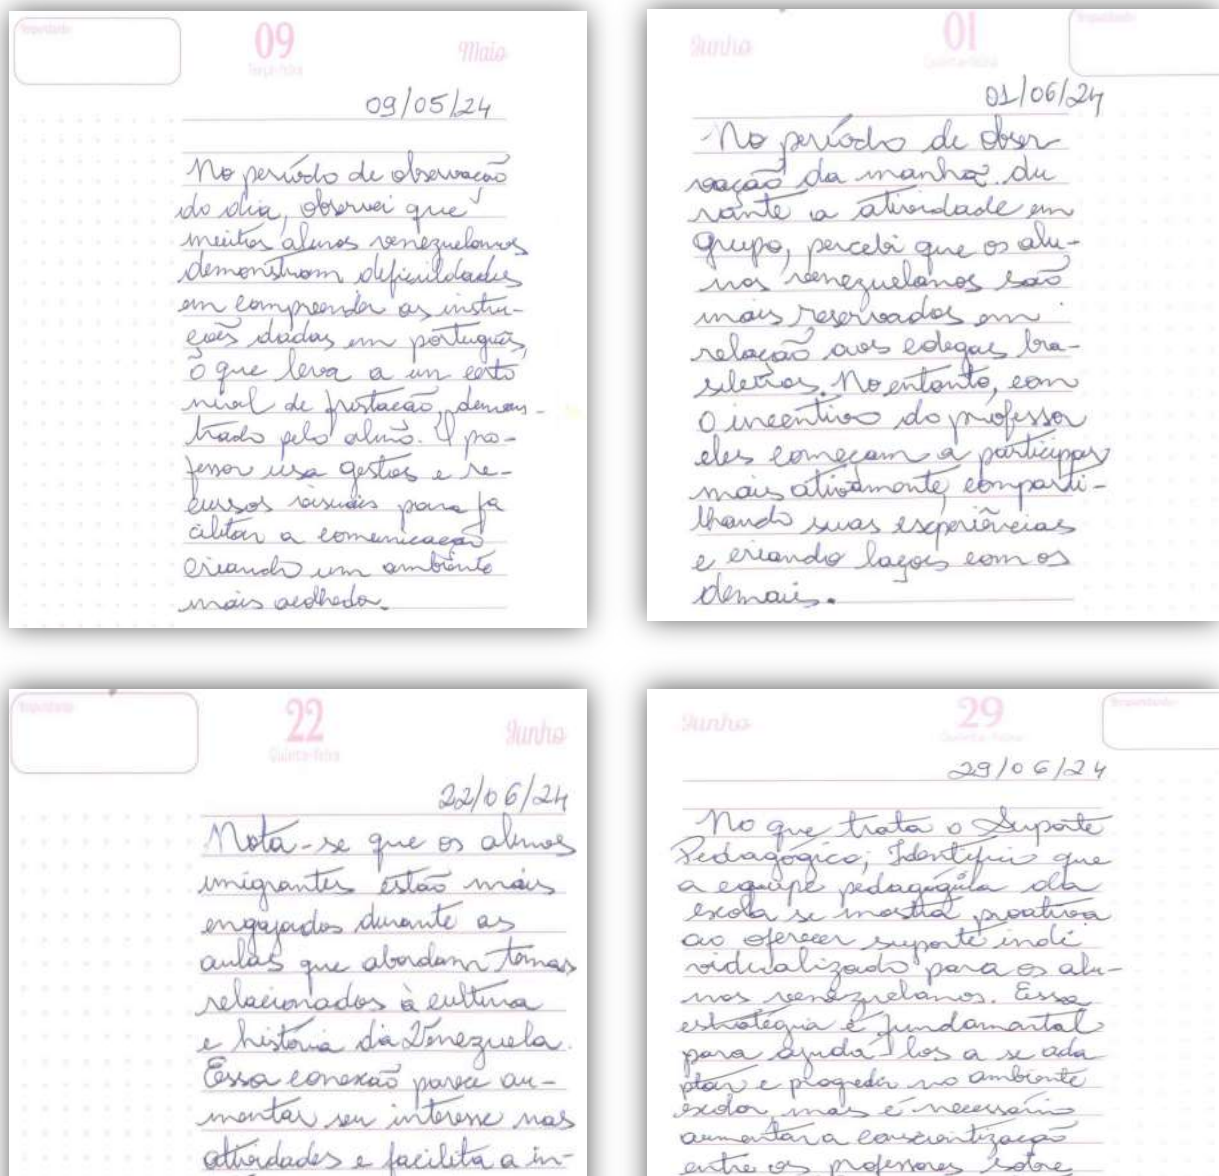 09
Terça-feira
Maio
09/05/24
No período de observação
do dia, observei que
muitos alunos venezuelanos
demonstram dificuldades
em compreender as instru-
ções dadas em português,
o que leva a um certo
nível de frustação, demons-
trado pelo aluno. O pro-
fessor usa gestos e re-
cursos visuais para fa
cilitar a comunicação
criando um ambiente
mais acolhedor.
Junho
01
Quinta-feira
01/06/24
No período de obser-
vação da manhã du
rante a atividade em
grupo, percebi que os alu-
nos venezuelanos são
mais reservados em
relação aos colegas bra-
sileiros. No entanto, com
o incentivo do professor
eles começam a participar
mais ativamente, comparti-
lhando suas experiências
e criando laços com os
demais.
22
Quinta-feira
Junho
22/06/24
Nota-se que os alunos
imigrantes estão mais
engajados durante as
aulas que abordam temas
relacionados à cultura
e história da Venezuela.
Essa conexão parece au-
mentar seu interesse nas
atividades e facilita a in-
Junho
29
Quinta-feira
29/06/24
No que trata o Suporte
Pedagógico; Identifiquei que
a equipe pedagógica da
escola se mostra proativa
ao oferecer suporte indi
vidualizado para os alu-
nos venezuelanos. Essa
estratégia é fundamental
para ajudá-los a se ada
ptar e progredir no ambiente
escolar, mas é necessário
aumentar a conscientização
entre os professores sobre